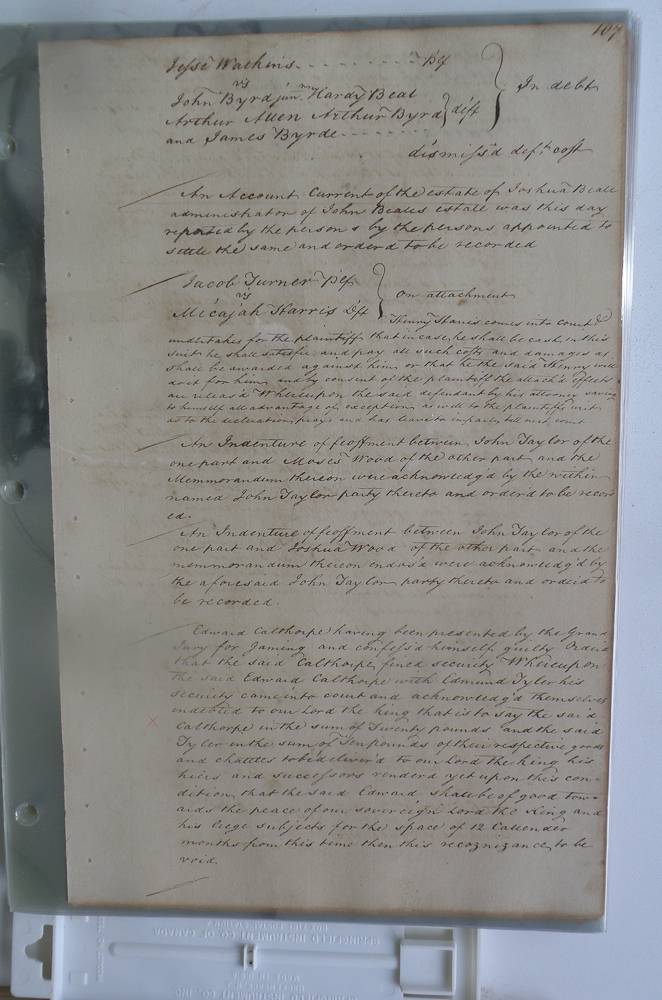 107
Jesse Watkins - - - - - - - Plf
vs
John Byrd junr. Hardy Beal
Arthur Allen Arthur Byrd } deft } In debt
and James Byrde - - - - - -
dismiss'd deft. cost
An Account Current of the estate of Joshua Beale
administrator of John Beales estate was this day
reported by the person s by the persons appointed to
settle the same and orderd to be recorded
Jacob Turner Plf
vs } On attachment
Micajah Harris Deft
Henry Harris comes into Court &
undertakes for the plaintiff that in case he shall be cash in this
suit he shall satisfie and pay all such costs and damages as
shall be awarded against him or that he the said Henry will
do it for him, and by consent of the plaintiff the attach'd effects
are releas'd Whereupon the said defendant by his attorney saving
to himself all advantage of exception as well to the plaintiffs writ
as to the declaration prays and has leave to imparle till next court
An Indenture of feoffment between John Taylor of the
one part and Moses Wood of the other part and the
Memmorandum thereon were acknowledg'd by the within
named John Taylor party thereto and order'd to be record
ed.
An Indenture of feoffment between John Taylor of the
one part and Joshua Wood of the other part and the
memmorandum thereon endors'd were acknowledg'd by
the aforesaid John Taylor party thereto and order'd to
be recorded.
Edward Calthorpe having been presented by the Grand
Jury for Gaming and confess'd himself guilty Order'd
that the said Calthorpe find security Whereupon
the said Edward Calthorpe with Edmund Tyler his
security came into court and acknowledg'd themselves
indebted to our Lord the king that is to say the said
Calthorpe in the sum of Twenty pounds and the said
Tyler in the sum of Ten pounds of their respective goods
and chattles to be deliver'd to our Lord the king his
heirs and successors render'd yet upon this con-
dition that the said Edward shall be of good tow-
ards the peace of our sovereign Lord the King and
his liege subjects for the space of 12 Callender
months from this time then this recognizance to be
void.
SPRINGFIELD INSTRUMENT CO. OF CANADA
SPRINGFIELD INSTRUMENT CO. INC.